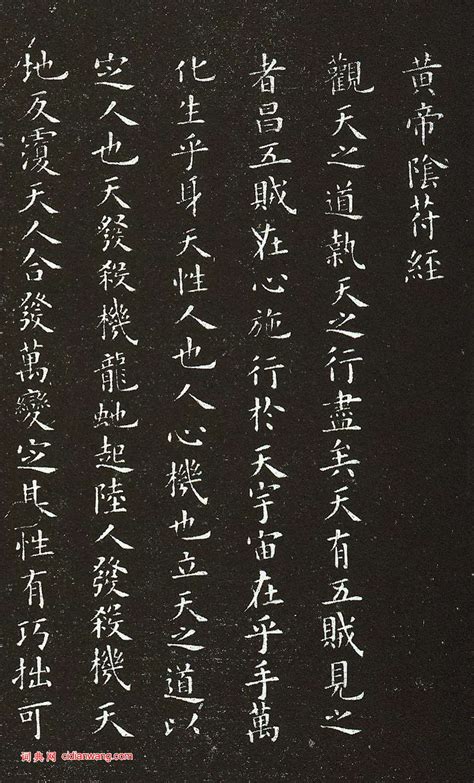 黄帝陰苻經
觀天之道執天之行盡矣天有五賊見之
者昌五賊在心施行於天宇宙在乎手萬
化生乎身天性人也人心機也立天之道以
定人也天發殺機龍虵起陸人發殺機天
地反覆天人合發萬變定其性有巧拙可
词典网 cidianwang.com